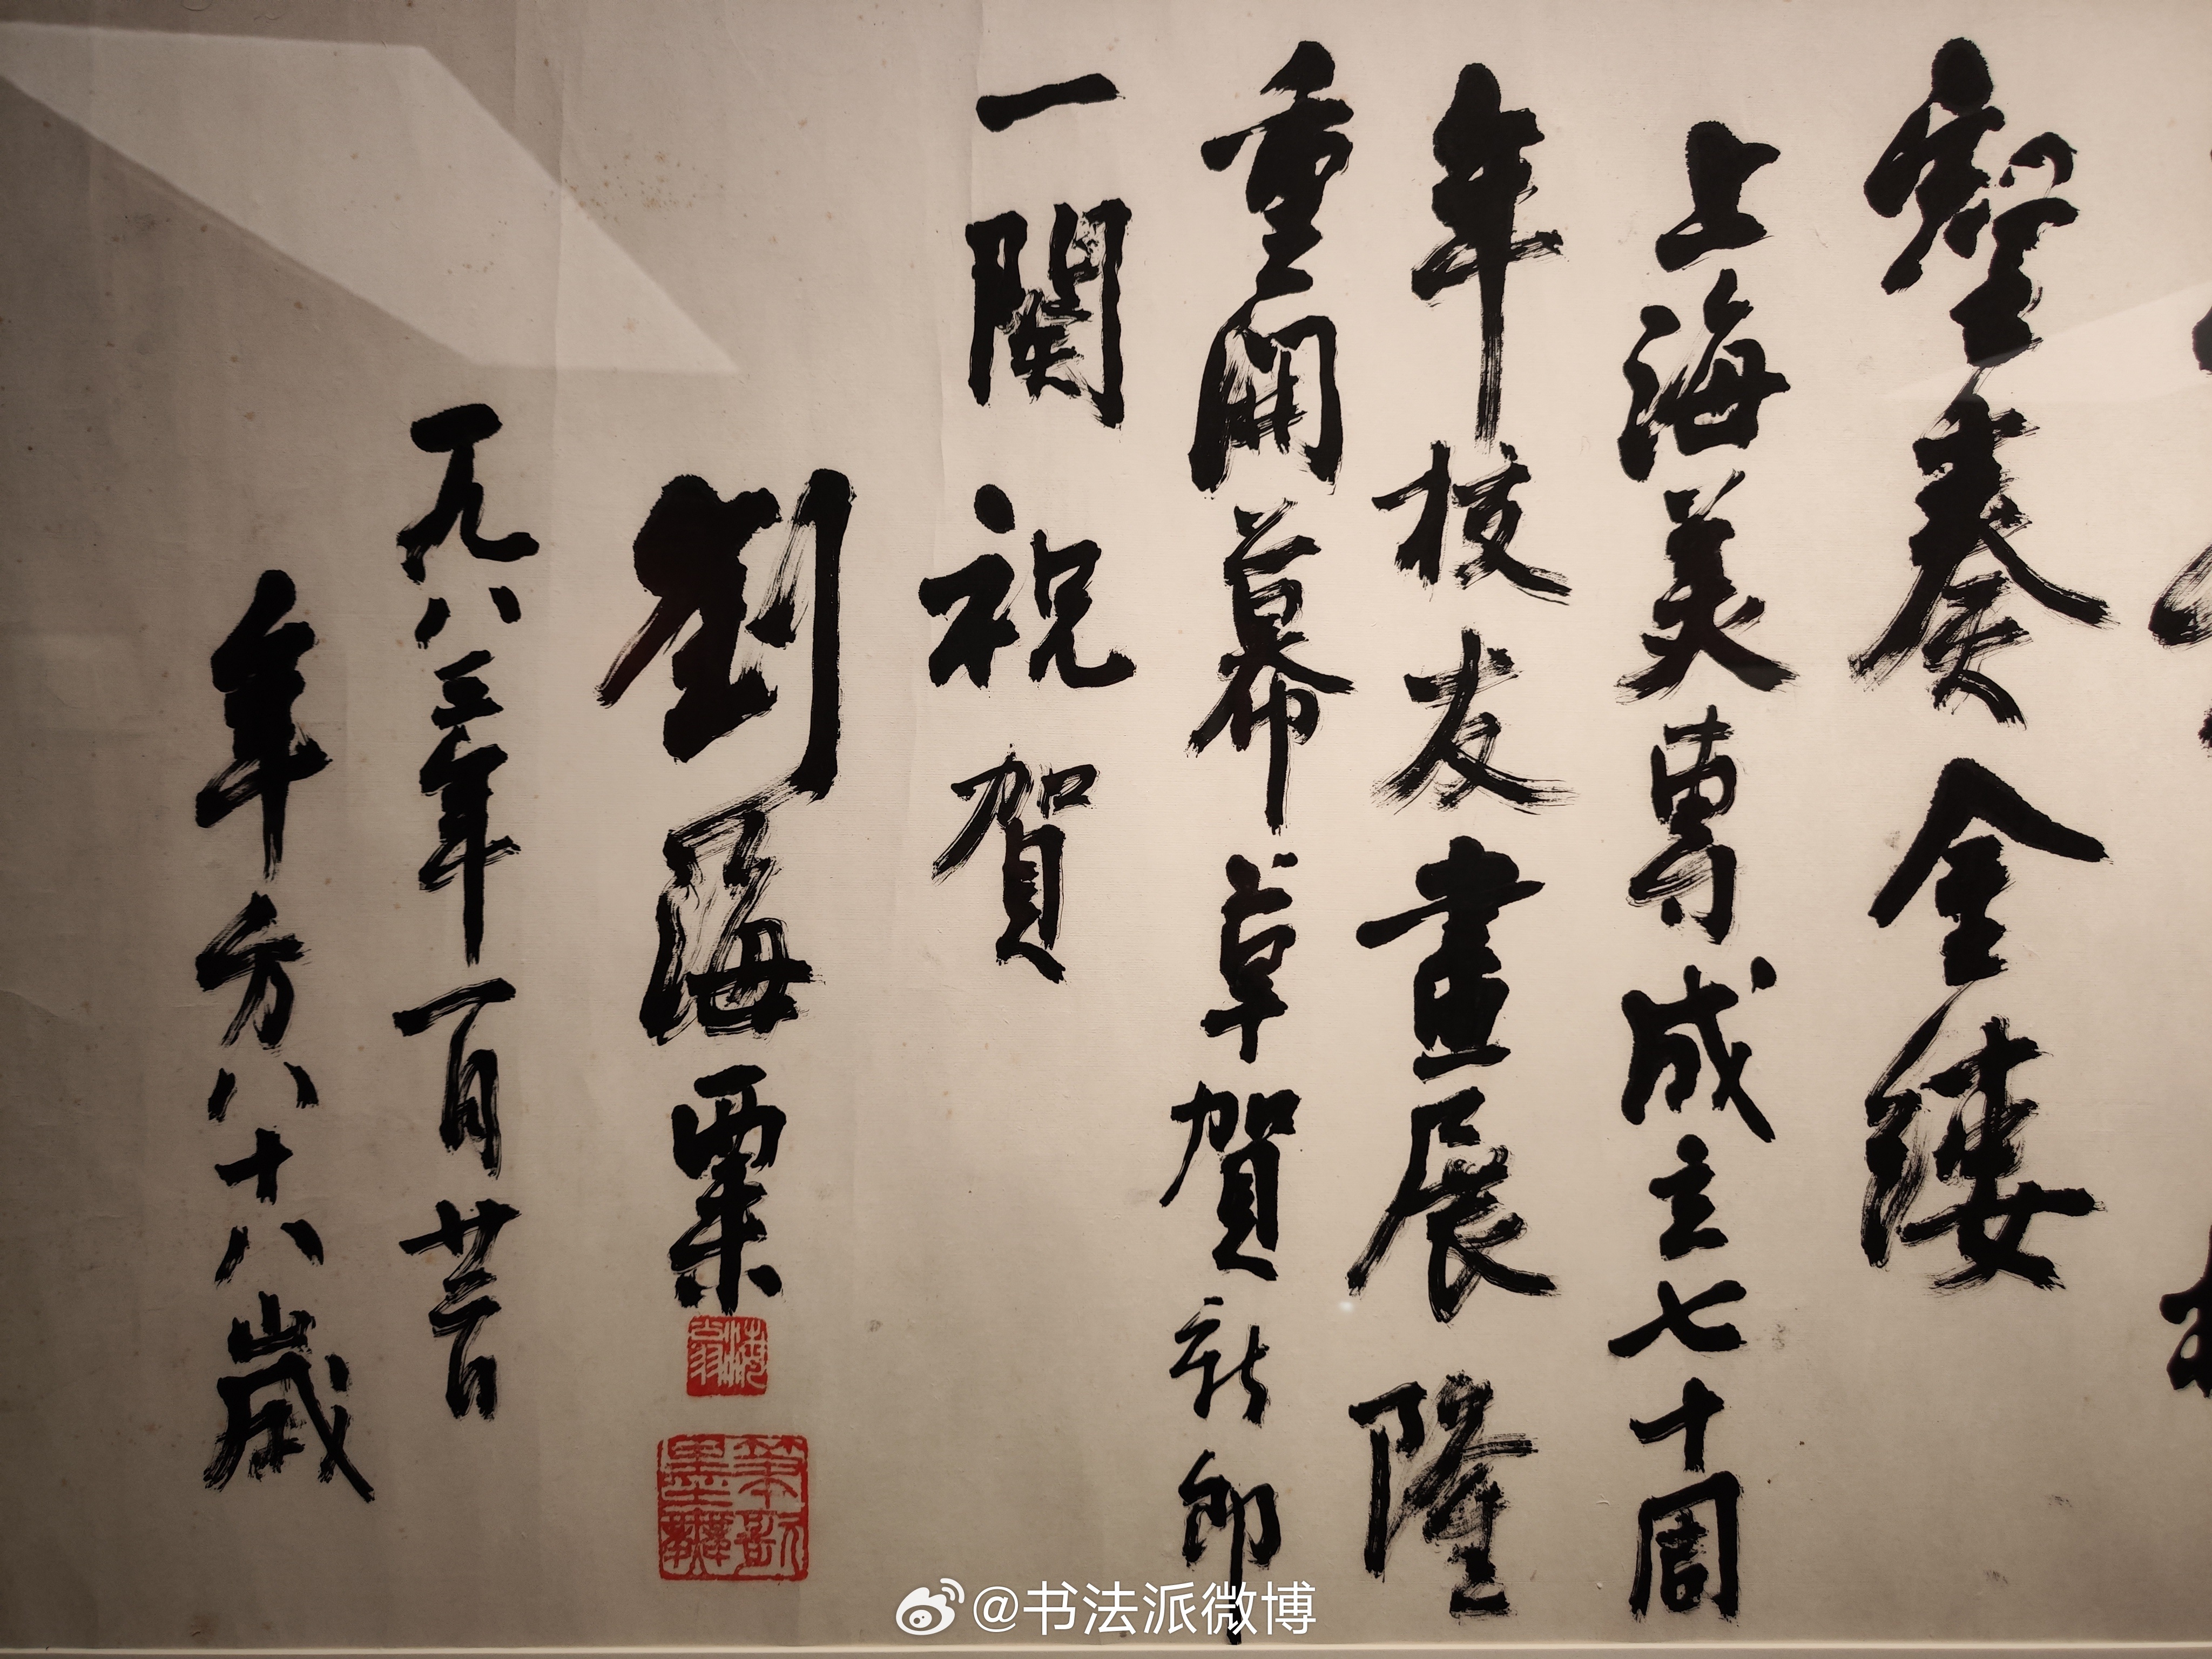 奏金縷
上海美專成立七十周
年校友畫展隆
重開幕草賀新郎
一闋祝賀
劉海粟
海翁
筆歌墨舞
一九八三年一月廿二日
年方八十八歲
@书法派微博